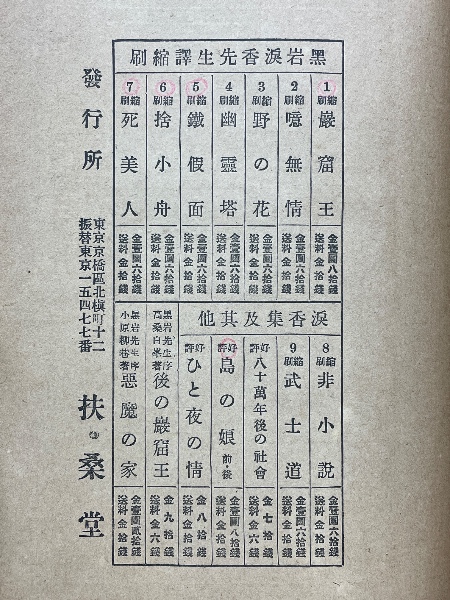 黑岩淚香先生譯縮刷
1 縮刷 巖窟王 金壹圓八拾錢 送料金拾錢
2 縮刷 噫無情 金壹圓六拾錢 送料金拾錢
3 縮刷 野の花 金壹圓六拾錢 送料金拾錢
4 縮刷 幽靈塔 金壹圓六拾錢 送料金拾錢
5 縮刷 鐵假面 金壹圓六拾錢 送料金拾錢
6 縮刷 捨小舟 金壹圓六拾錢 送料金拾錢
7 縮刷 死美人 金壹圓六拾錢 送料金拾錢
淚香集及其他
8 縮刷 非小說 金壹圓六拾錢 送料金拾錢
9 縮刷 武士道 金壹圓六拾錢 送料金拾錢
八十萬年後の社會 金七拾錢 送料金六錢
好評 島の娘 前・後 金壹圓八拾錢 送料金拾錢
好評 ひと夜の情 金八拾錢 送料金拾錢
黑岩先生序 高桑白峯著 後の巖窟王 金九拾錢 送料金六錢
黑岩先生序 小原柳巷著 惡魔の家 金壹圓貳拾錢 送料金拾錢
發行所
東京京橋區北槇町十二
振替東京一五四七七番
扶桑堂